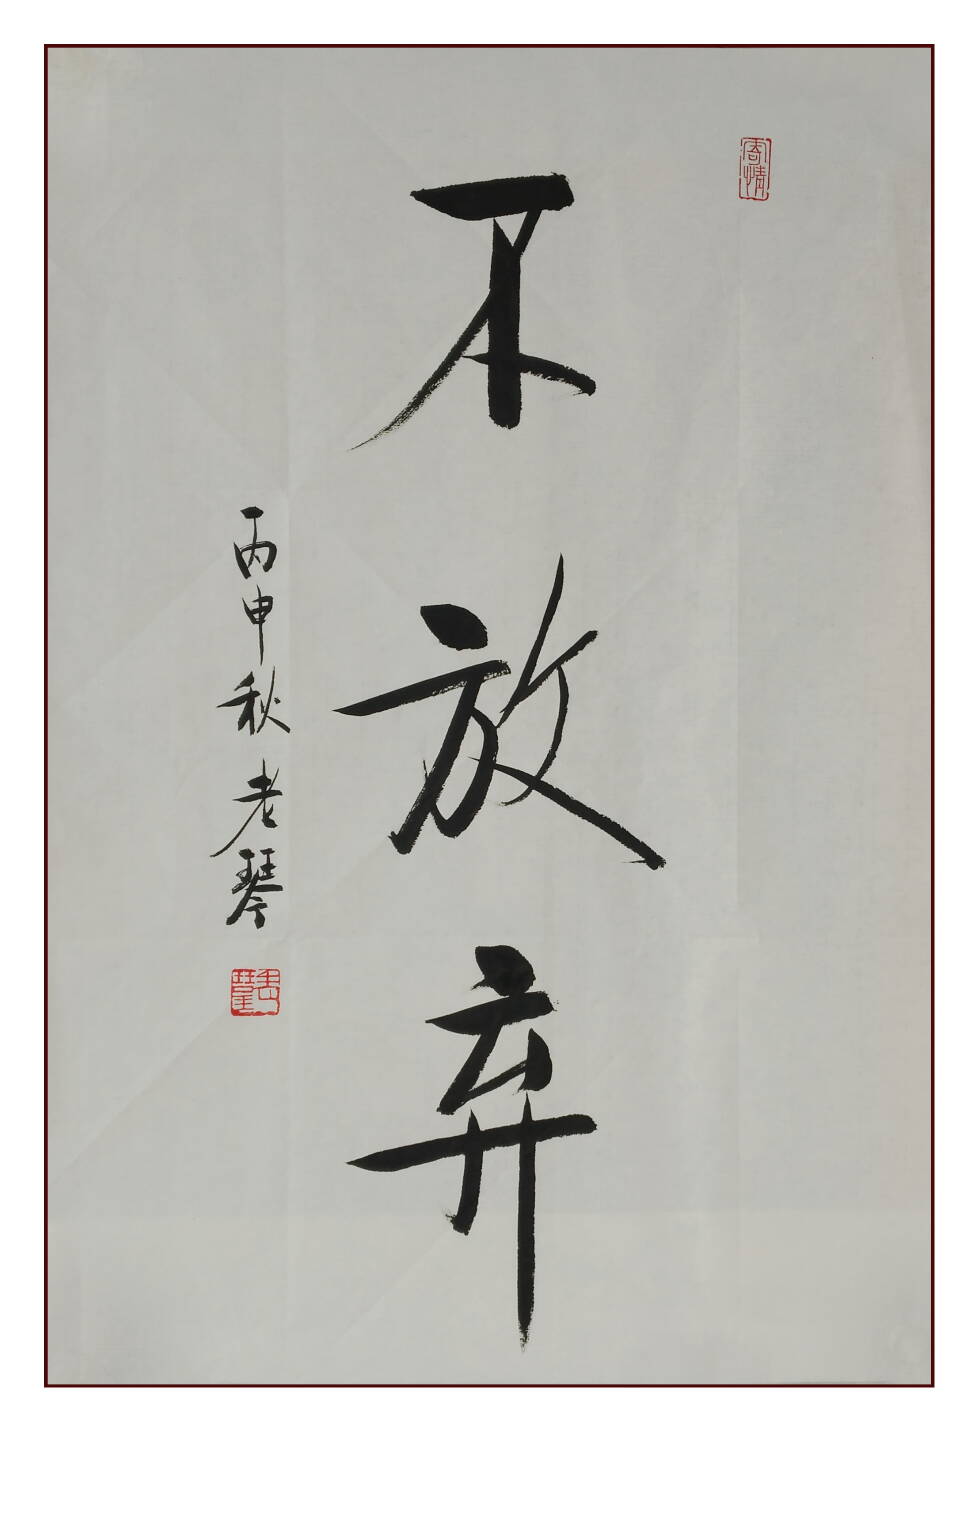 寄情
不放弃
丙申秋 老琴